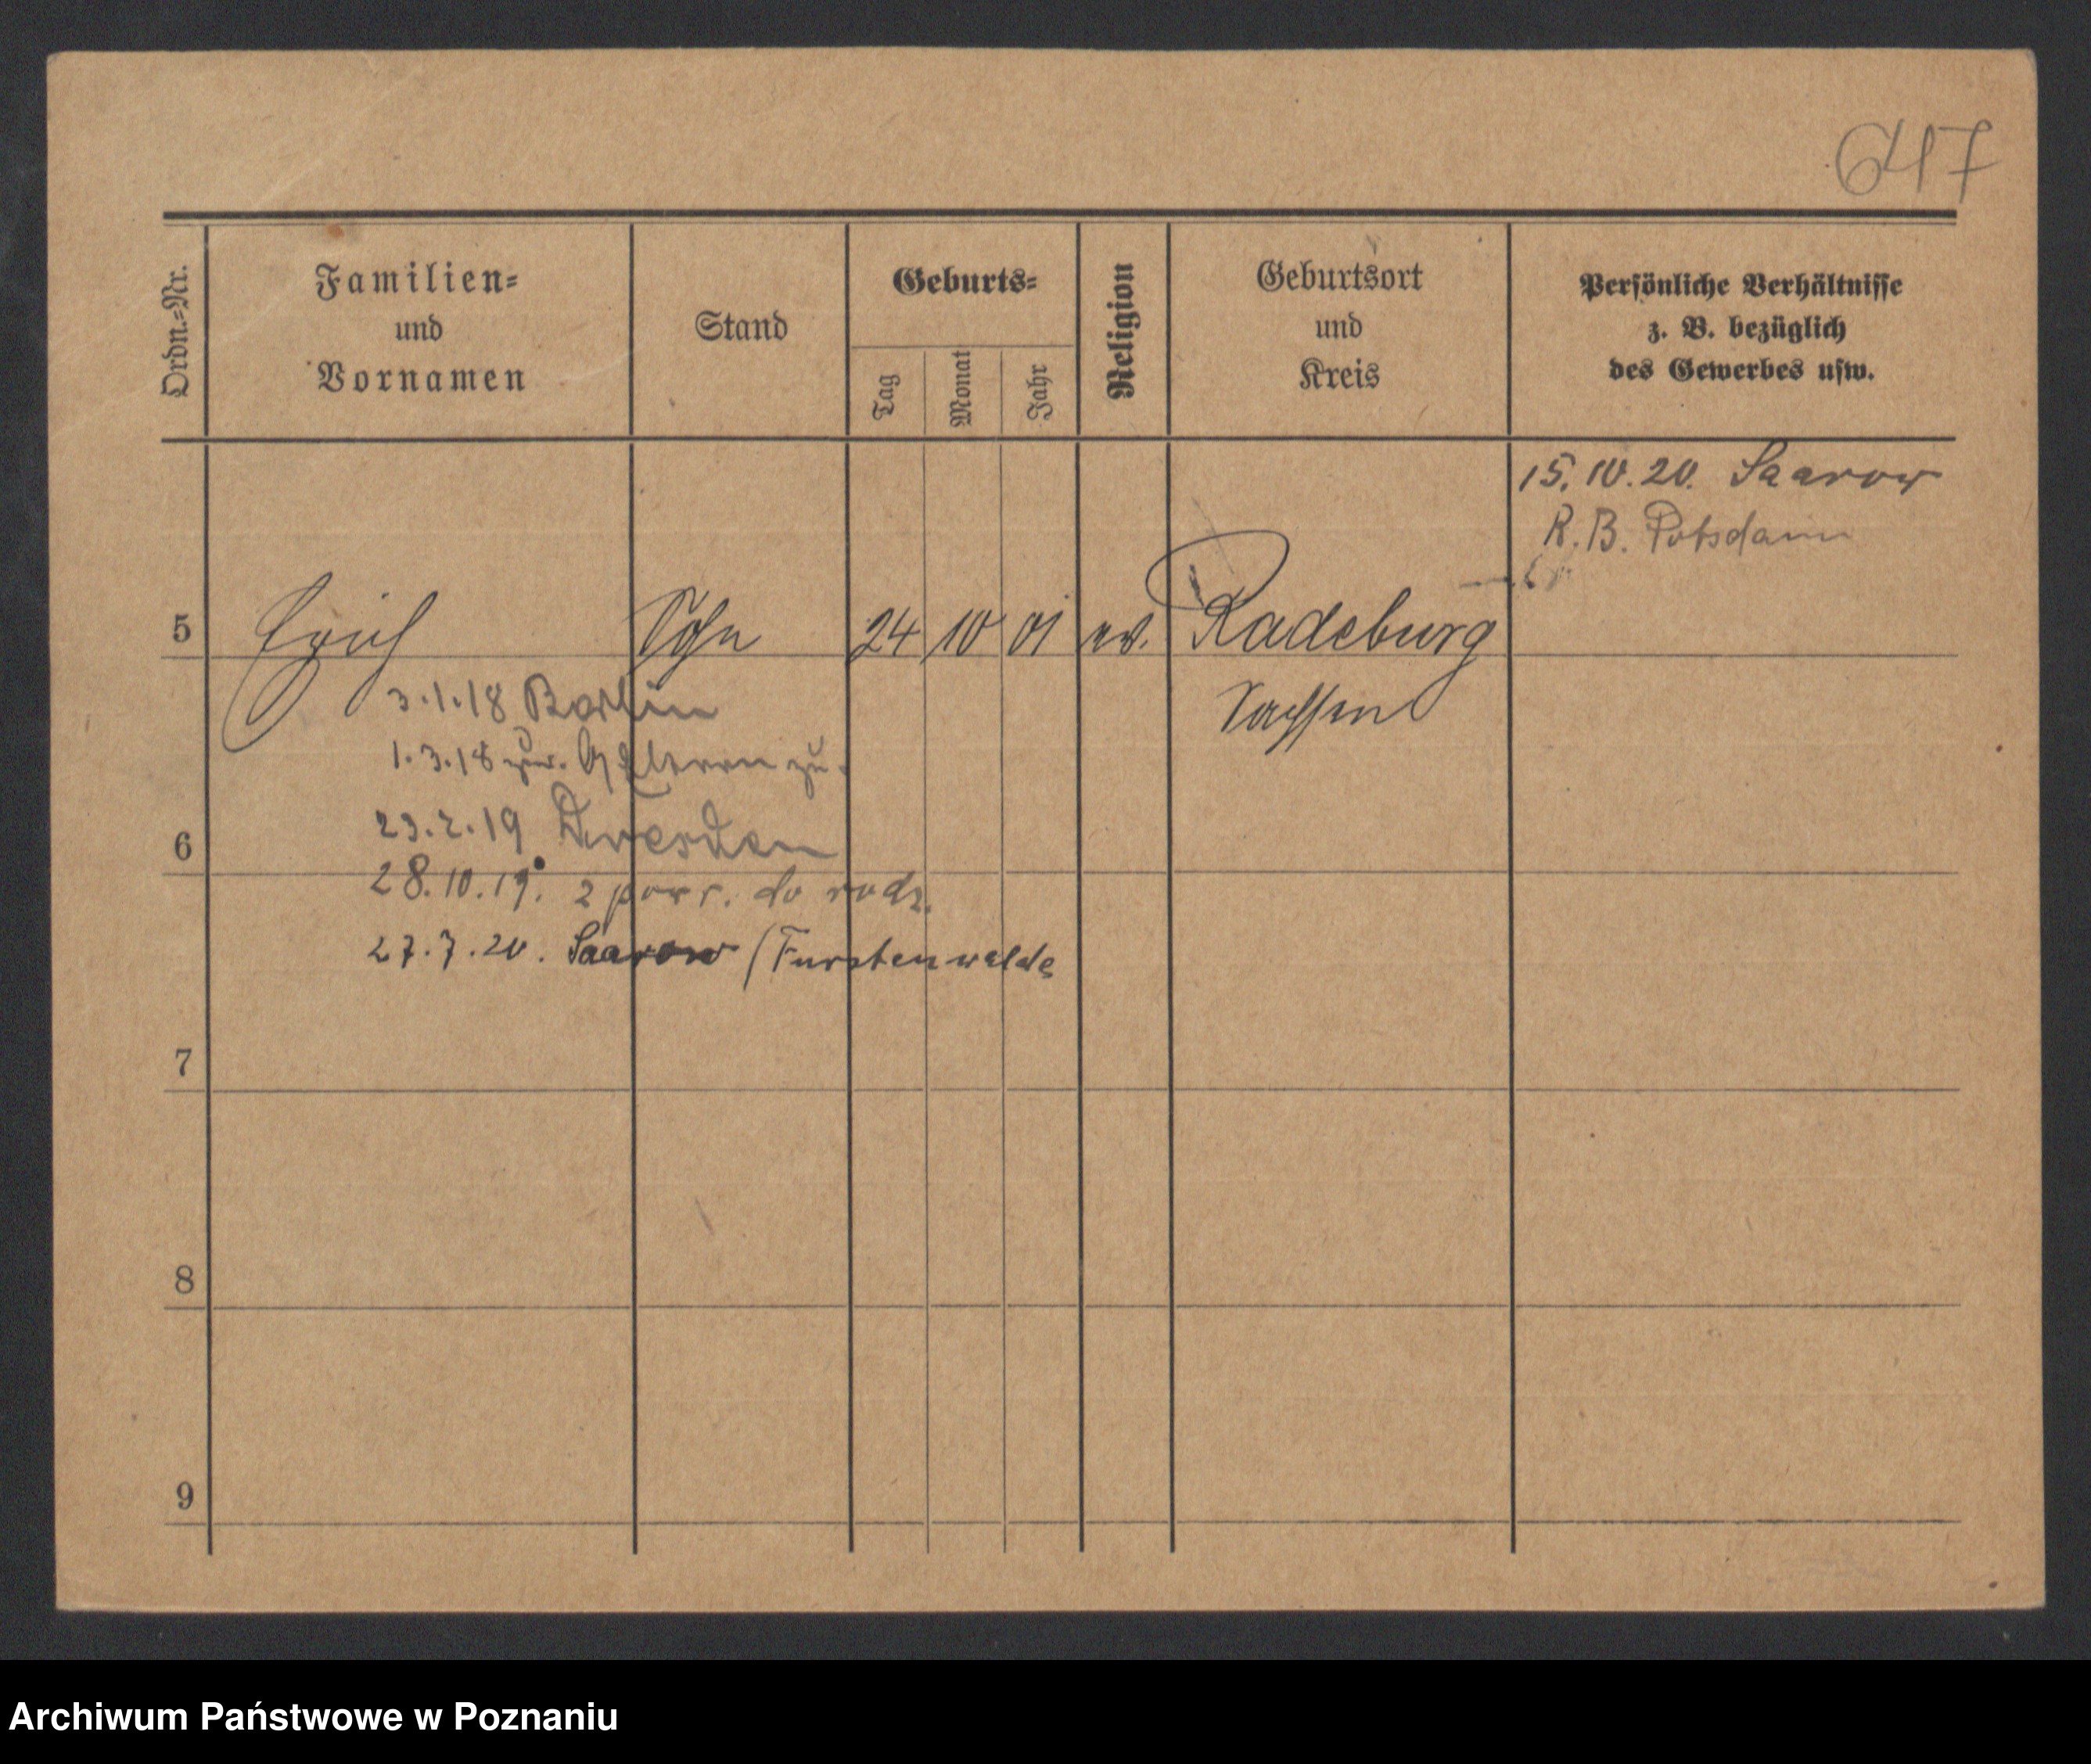 647
Ordn.=Nr.
Familien=
und
Vornamen
Stand
Geburts=
Tag
Monat
Jahr
Religion
Geburtsort
und
Kreis
Persönliche Verhältnisse
z. B. bezüglich
des Gewerbes usw.
15.10.20. Saarow
R. B. Potsdam
5 Erich Sohn 24 10 01 ev. Radeburg
Sachsen
3.1.18 Berlin
1.3.18 zur. Eltern zu.
23.2.19 Dresden
6
28.10.19. z powr. do rodz.
27.7.20. Saarow / Furstenwalde
7
8
9
Archiwum Państwowe w Poznaniu